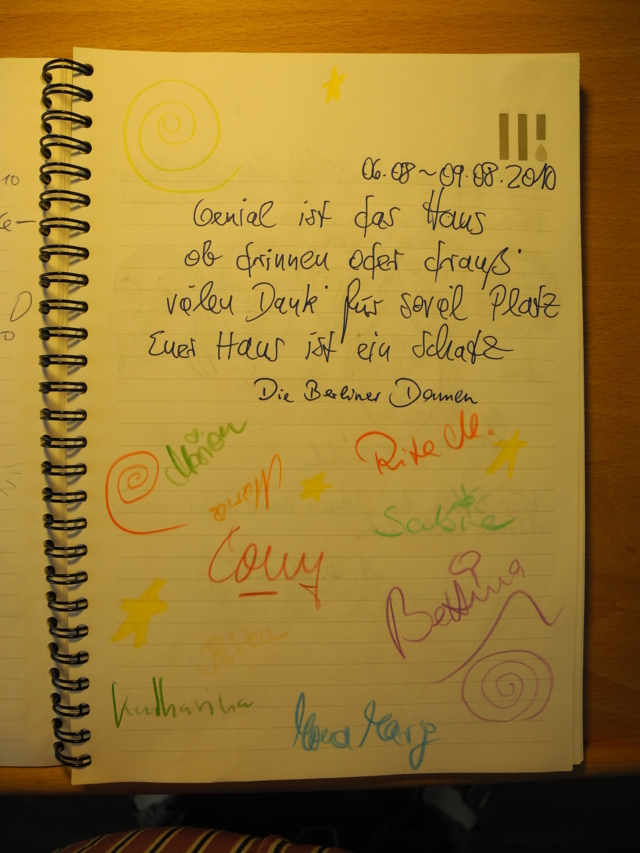 10
06.08~09.08.2010
Genial ist das Haus
ob drinnen oder drauß'
vielen Dank für soviel Platz
Euer Haus ist ein Schatz
Die Berliner Damen
Marion
Rita M.
Maria
Sabine
Cony
Bettina
Rita
Katharina